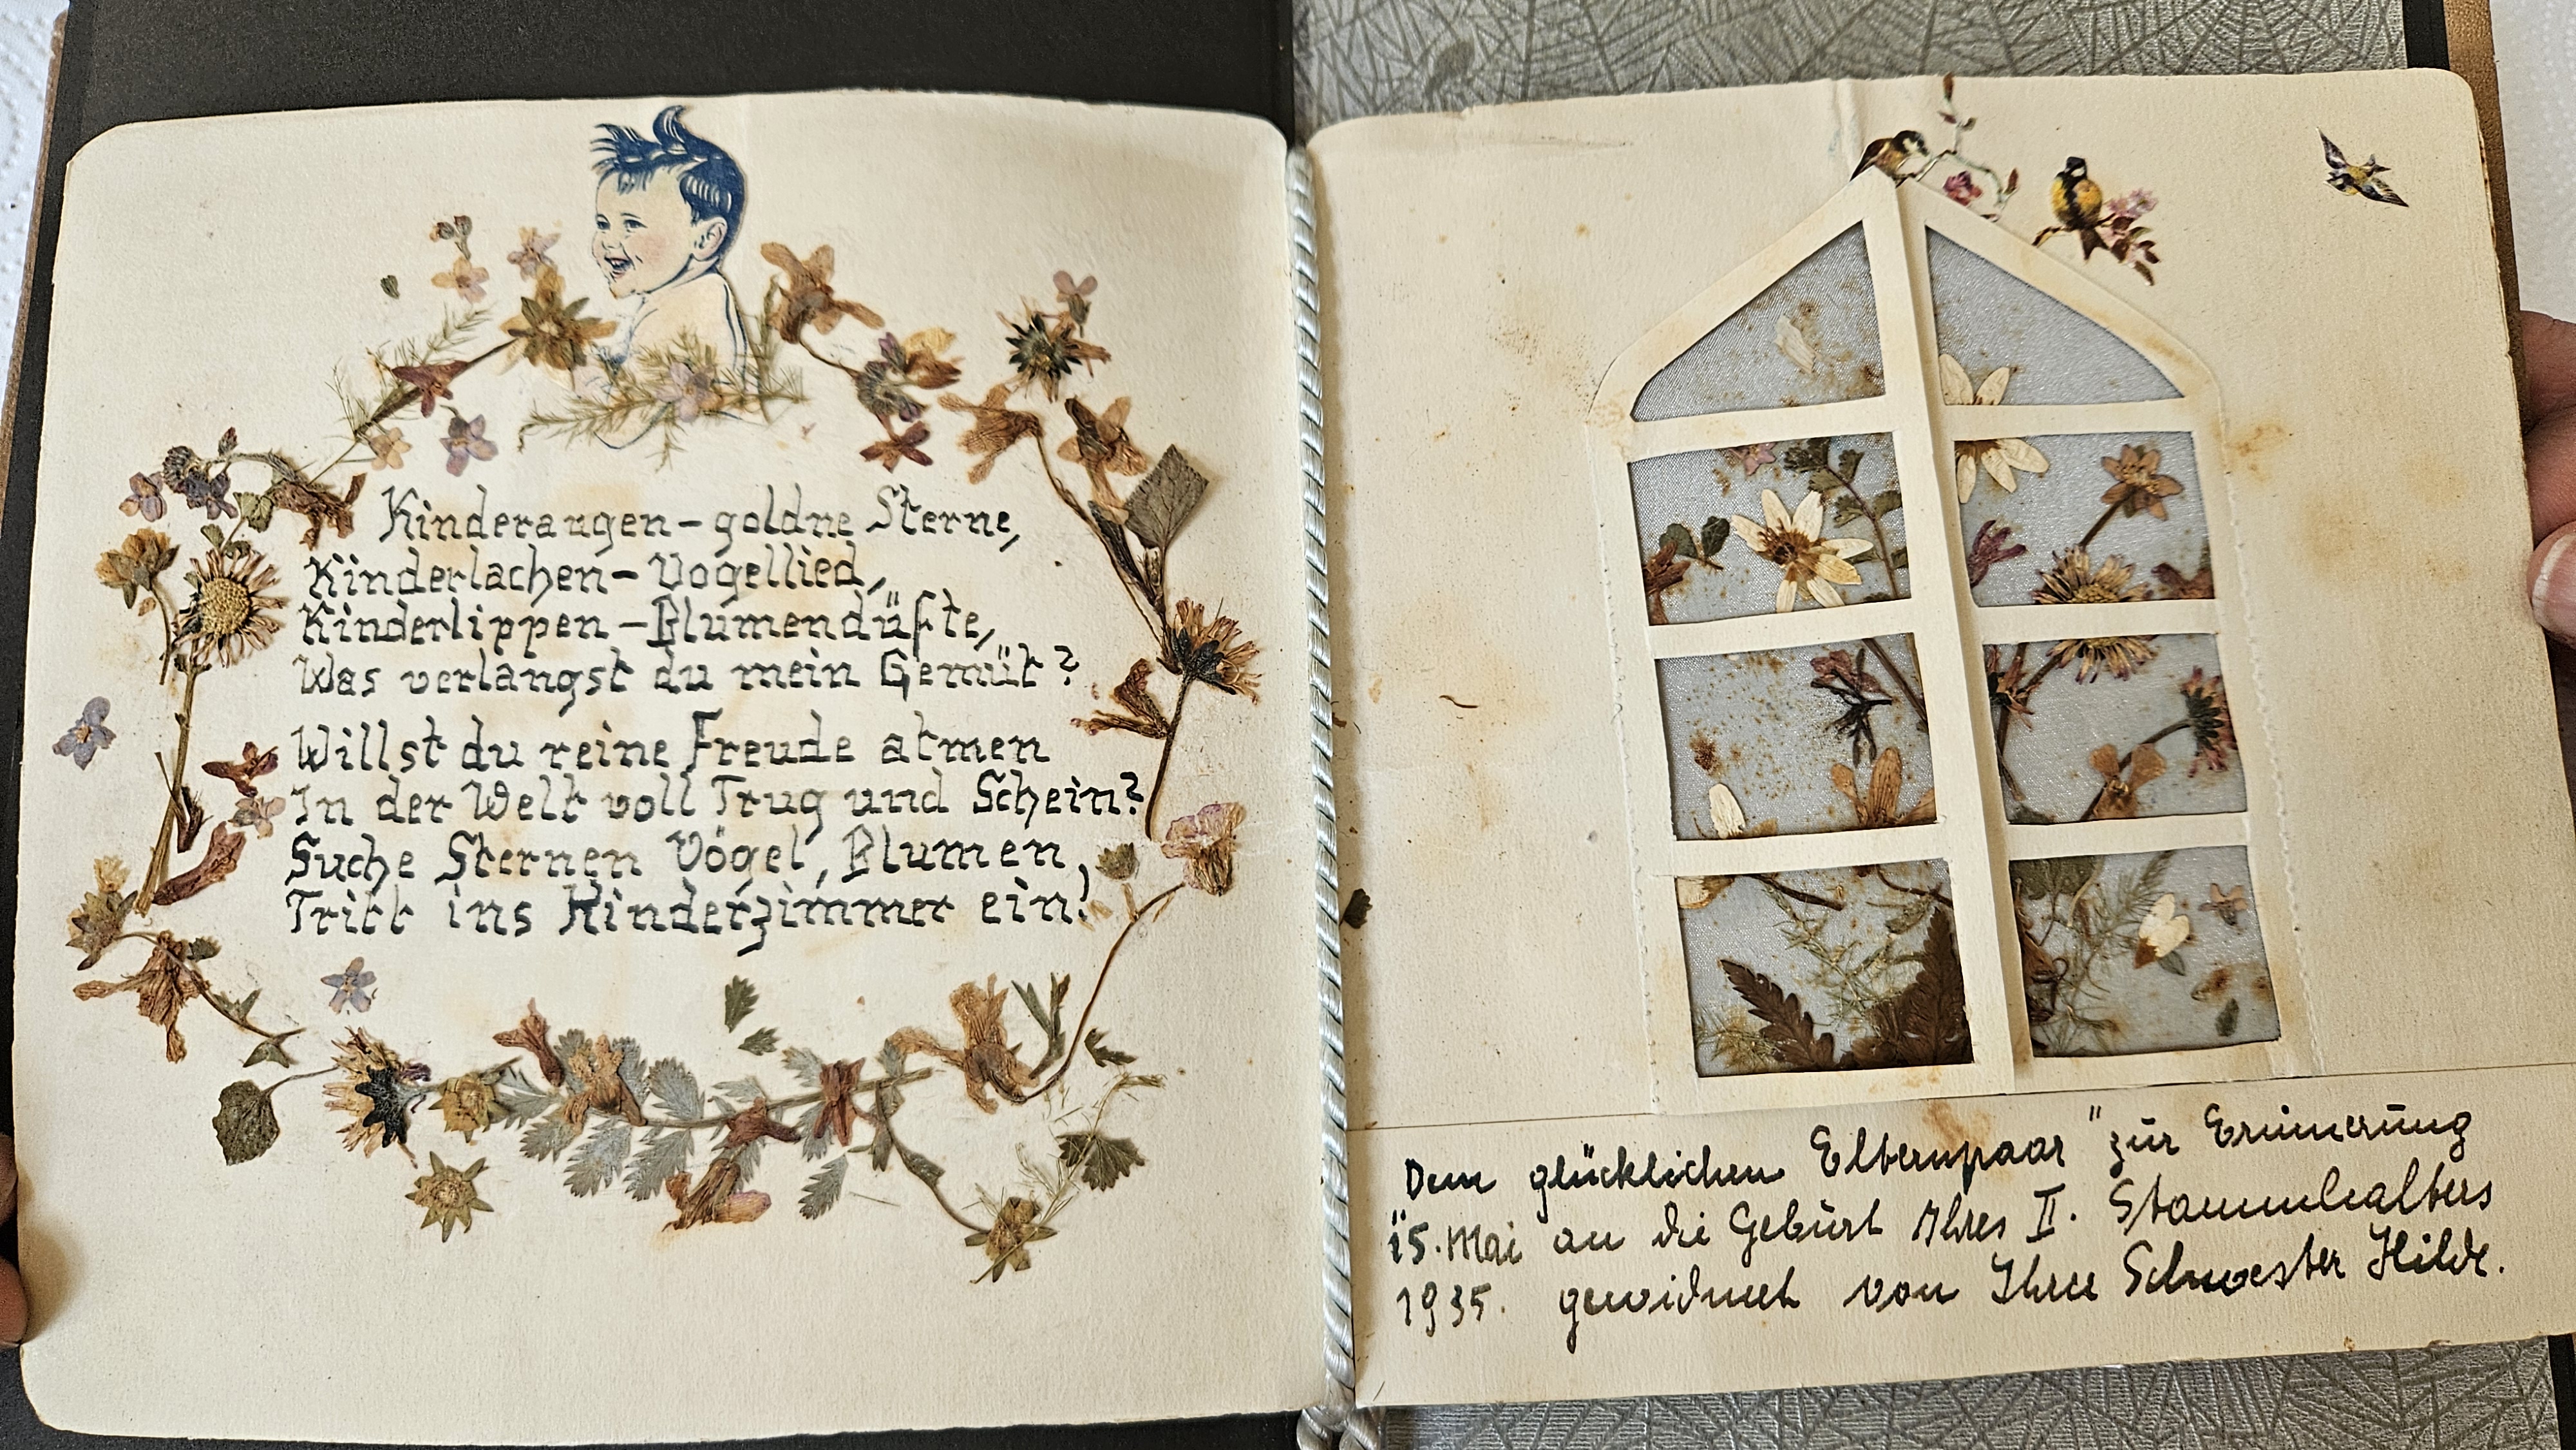 Kinderaugen – goldne Sterne,
Kinderlachen – Vogellied,
Kinderlippen – Blumendüfte,
Was verlangst du mein Gemüt?
Willst du reine Freude atmen
In der Welt voll Trug und Schein?
Suche Sternen Vögel, Blumen,
Tritt ins Kinderzimmer ein!
Dem glücklichen Elternpaar " zur Erinnerung
15. Mai an die Geburt Ihres II. Stammhalters
1935. gewidmet von Ihrer Schwester Hilde.